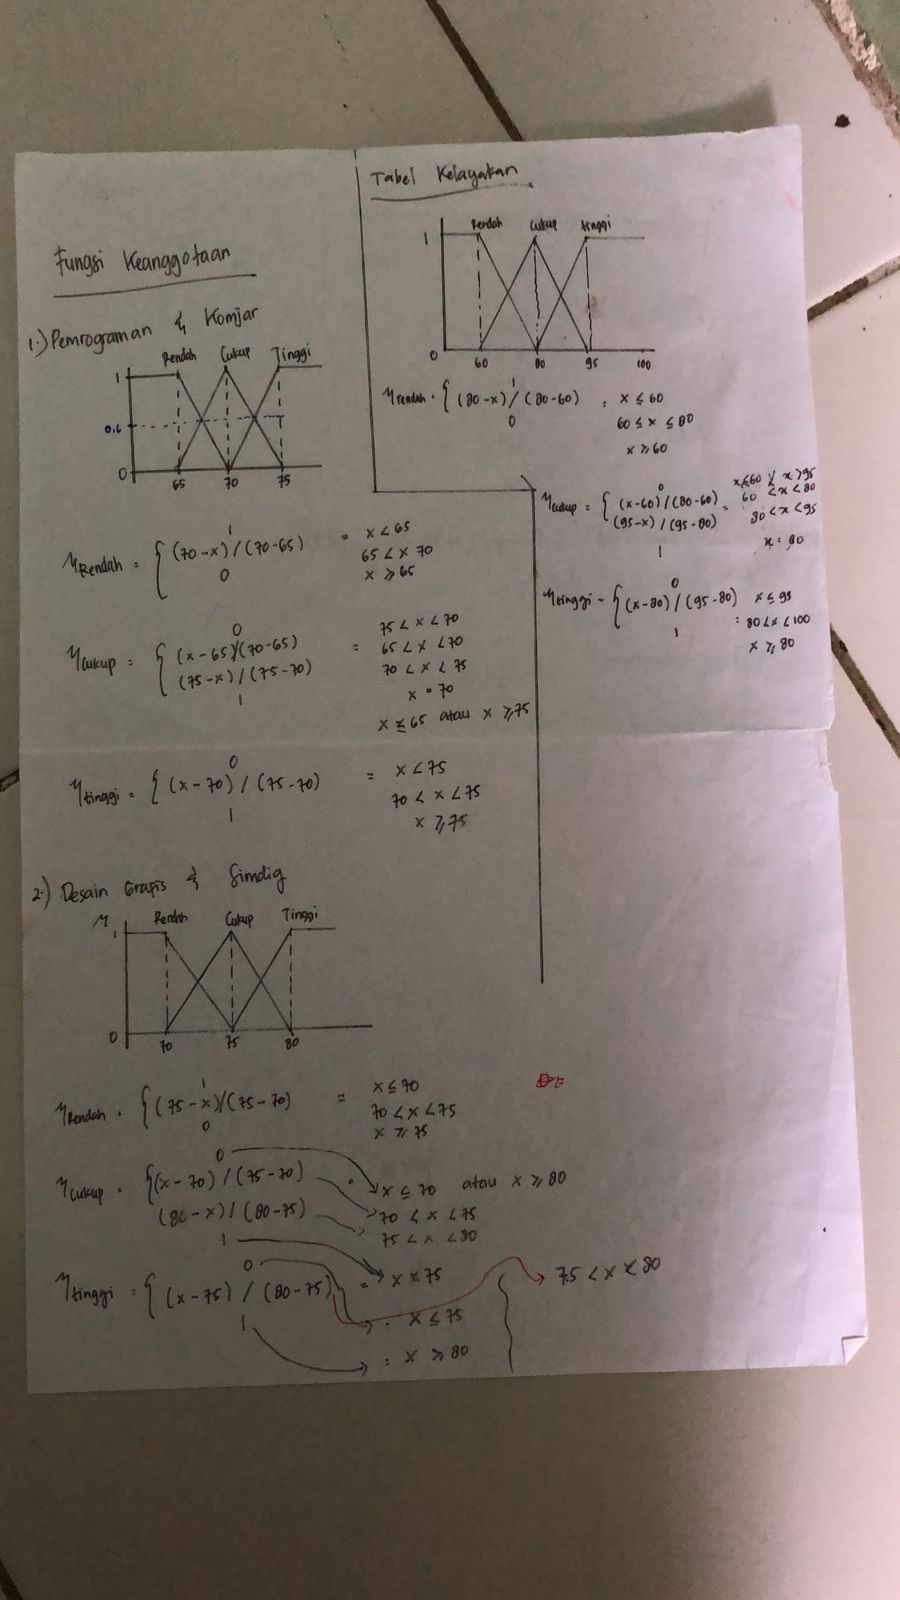 Fungsi Keanggotaan
1.) Pemrograman & Komjar
Rendah Cukup Tinggi
1
0,6
0
65 70 75
μRendah = { 1
(70-x)/(70-65) = x < 65
0 65 < x 70
x ≥ 65
μCukup = { 0
(x-65)(70-65) =
(75-x)/(75-70)
1
75 < x < 70
65 < x < 70
70 < x < 75
x = 70
x ≤ 65 atau x ≥ 75
μtinggi = { 0
(x-70) / (75-70) = x < 75
1 70 < x < 75
x ≥ 75
2.) Desain Grafis & Simdig
μ Rendah Cukup Tinggi
1
0
70 75 80
μRendah = { 1
(75-x)/(75-70) = x ≤ 70
0 70 < x < 75
x ≥ 75
μCukup = { 0
(x-70)/(75-70) = x ≤ 70 atau x ≥ 80
(80-x)/(80-75) 70 < x < 75
1 75 < x < 80
= x = 75
μtinggi = { 0
(x-75) / (80-75) 75 < x < 80
1 : x ≤ 75
: x ≥ 80
Tabel Kelayakan
Rendah Cukup tinggi
1
0
60 80 95 100
μrendah = { 1
(80-x)/(80-60) = x ≤ 60
0 60 ≤ x ≤ 80
x ≥ 60
μcukup = { 0
(x-60)/(80-60) =
(95-x)/(95-80)
1
60 < x < 80
80 < x < 95
x = 80
μtinggi = { 0
(x-80)/(95-80) x ≤ 95
1 = 80 < x < 100
x ≥ 80